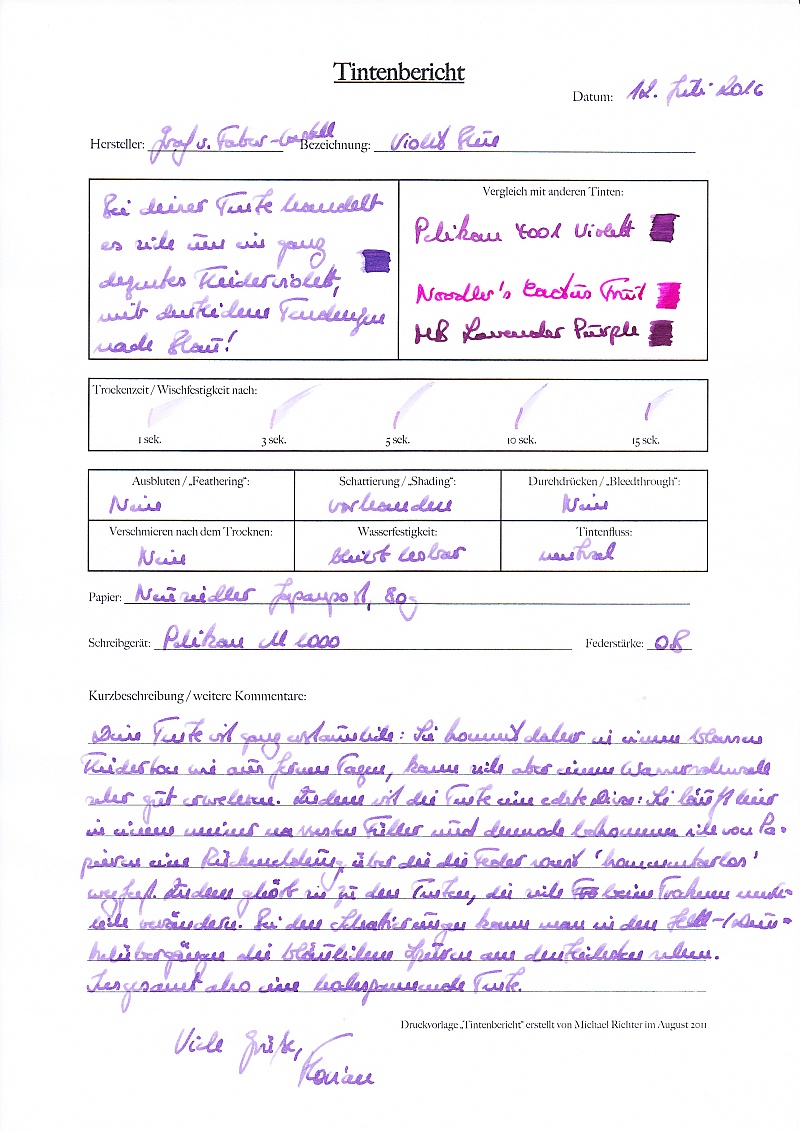 Tintenbericht
Datum: 12. Juli 2016
Hersteller: Graf v. Faber-Castell Bezeichnung: Violet Blue
Bei dieser Tinte handelt
es sich um ein ganz
dezentes Fliederviolett,
mit deutlichen Tendenzen
nach Blau!
Vergleich mit anderen Tinten:
Pelikan 4001 Violett
Noodler's Cactus Fruit
MB Lavender Purple
Trockenzeit / Wischfestigkeit nach:
1 sek. 3 sek. 5 sek. 10 sek. 15 sek.
Ausbluten / „Feathering": Schattierung / „Shading": Durchdrücken / „Bleedthrough":
Nein vorhanden Nein
Verschmieren nach dem Trocknen: Wasserfestigkeit: Tintenfluss:
Nein bleibt lesbar neutral
Papier: Neusiedler Japanpost, 80g
Schreibgerät: Pelikan M 1000 Federstärke: OB
Kurzbeschreibung / weitere Kommentare:
Diese Tinte ist ganz erstaunlich: Sie kommt daher in einem blassen
Fliederton wie aus fernen Tagen, kann sich aber einem Wasserschwall
sehr gut erwehren. Zudem ist die Tinte eine echte Diva: Sie läuft hier
in einem meiner nassesten Füller und dennoch bekommen sie von Pa-
pieren eine Rückmeldung, über die die Feder sonst 'kommentarlos'
wegfegt. Zudem gehört sie zu den Tinten, die sich beim Trocknen
verändern. Bei den Schattierungen kann man in den Hell-/Dun-
kelübergängen die bläulichen Spuren am deutlichsten sehen.
Insgesamt also eine hochspannende Tinte.
Druckvorlage „Tintenbericht" erstellt von Michael Richter im August 2011
Viele Grüße,
Florian